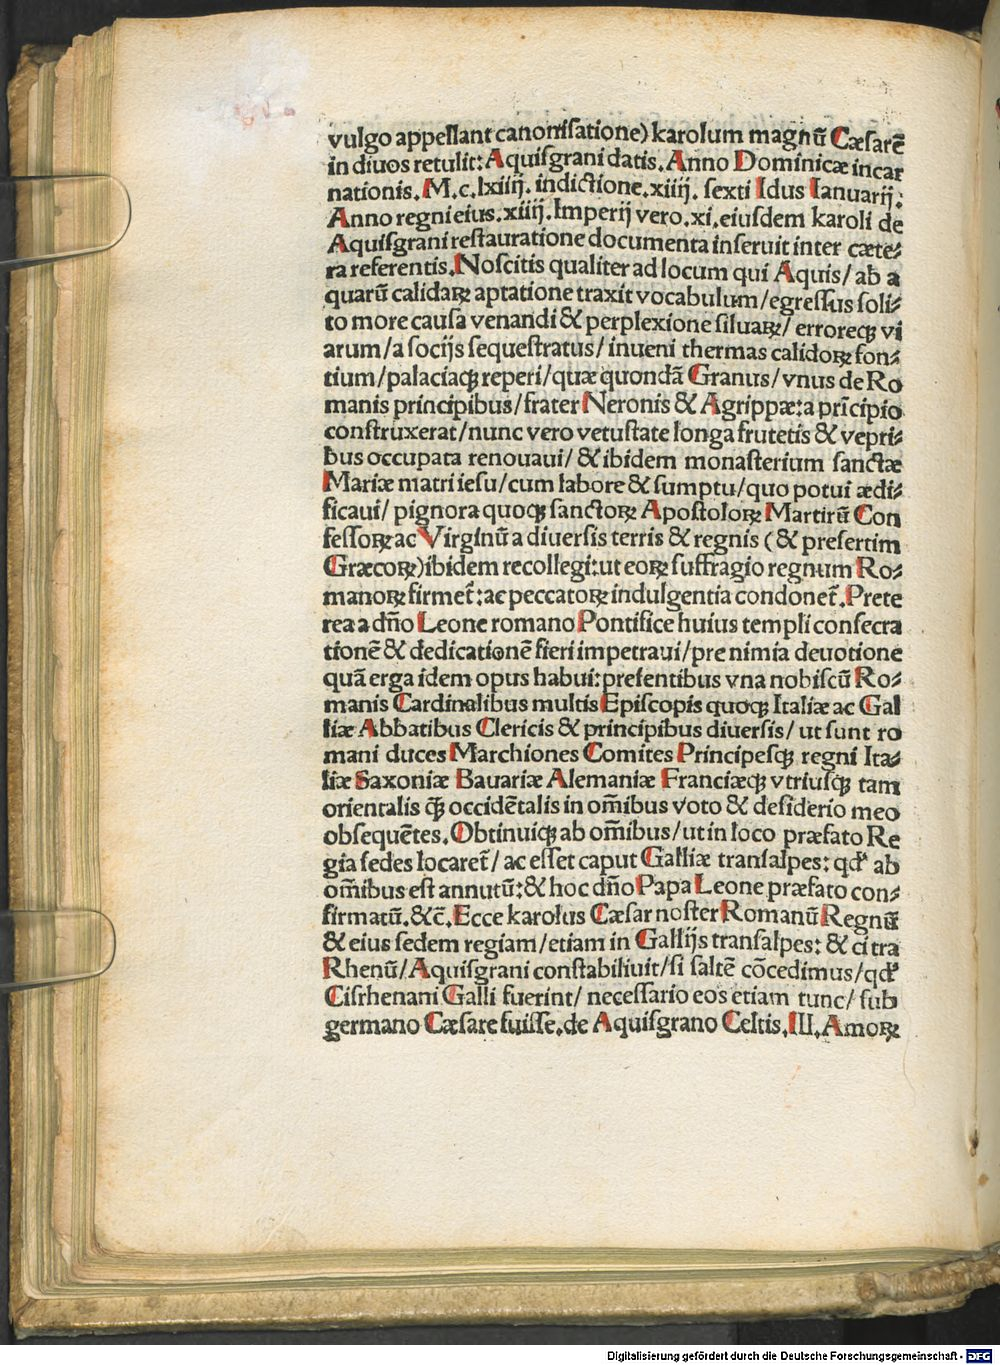 vulgo appellant canonisatione) karolum magnū Cæsarē
in diuos retulit: Aquisgrani datis. Anno Dominicæ incar
nationis. M.c.lxiiij. indictione.xiiij. sexti Idus Ianuarij:
Anno regni eius.xiiij. Imperij vero.xi.eiusdem karoli de
Aquisgrani restauratione documenta inseruit inter cæte⸗
ra referentis. Noscitis qualiter ad locum qui Aquis/ ab a
quarū calidaꝝ aptatione traxit vocabulum/egressus soli⸗
to more causa venandi & perplexione siluaꝝ/ erroreqꝫ vi
arum/a socijs sequestratus/ inueni thermas calidoꝝ fon⸗
tium/palaciaqꝫ reperi/quæ quondā Granus/ vnus de Ro
manis principibus/frater Neronis & Agrippæ: a prīcipio
construxerat/nunc vero vetustate longa frutetis & vepri⸗
bus occupata renouaui/ & ibidem monasterium sanctæ
Mariæ matri iesu/cum labore & sumptu/quo potui ædi⸗
ficaui/ pignora quoqꝫ sanctoꝝ Apostoloꝝ Martirū Con
fessoꝝ ac Virginū a diuersis terris & regnis (& presertim
Græcoꝝ)ibidem recollegi: ut eoꝝ suffragio regnum Ro⸗
manoꝝ firmet̄: ac peccatoꝝ indulgentia condonet̄. Prete
rea a dn̄o Leone romano Pontifice huius templi consecra
tionē & dedicationē fieri impetraui/pre nimia deuotione
quā erga idem opus habui: presentibus vna nobiscū Ro⸗
manis Cardinalibus multis Episcopis quoqꝫ Italiæ ac Gal
liæ Abbatibus Clericis & principibus diuersis/ ut sunt ro
mani duces Marchiones Comites Principesqꝫ regni Ita⸗
liæ Saxoniæ Bauariæ Alemaniæ Franciæqꝫ vtriusqꝫ tam
orientalis qꝫ̄ occidētalis in om̄ibus voto & desiderio meo
obsequētes. Obtinuiqꝫ ab om̄ibus/ut in loco præfato Re
gia sedes locaret̄/ ac esset caput Galliæ transalpes: qđ ab
om̄ibus est annutū: & hoc dn̄o Papa Leone præfato con⸗
firmatū. &c̄. Ecce karolus Cæsar noster Romanū Regnū
& eius sedem regiam/etiam in Gallijs transalpes: & citra
Rhenū/Aquisgrani constabiliuit/si saltē cōcedimus/qđ
Cisrhenani Galli fuerint/ necessario eos etiam tunc/ sub
germano Cæsare fuisse.de Aquisgrano Celtis.III.Amoꝝ
Digitalisierung gefördert durch die Deutsche Forschungsgemeinschaft - DFG